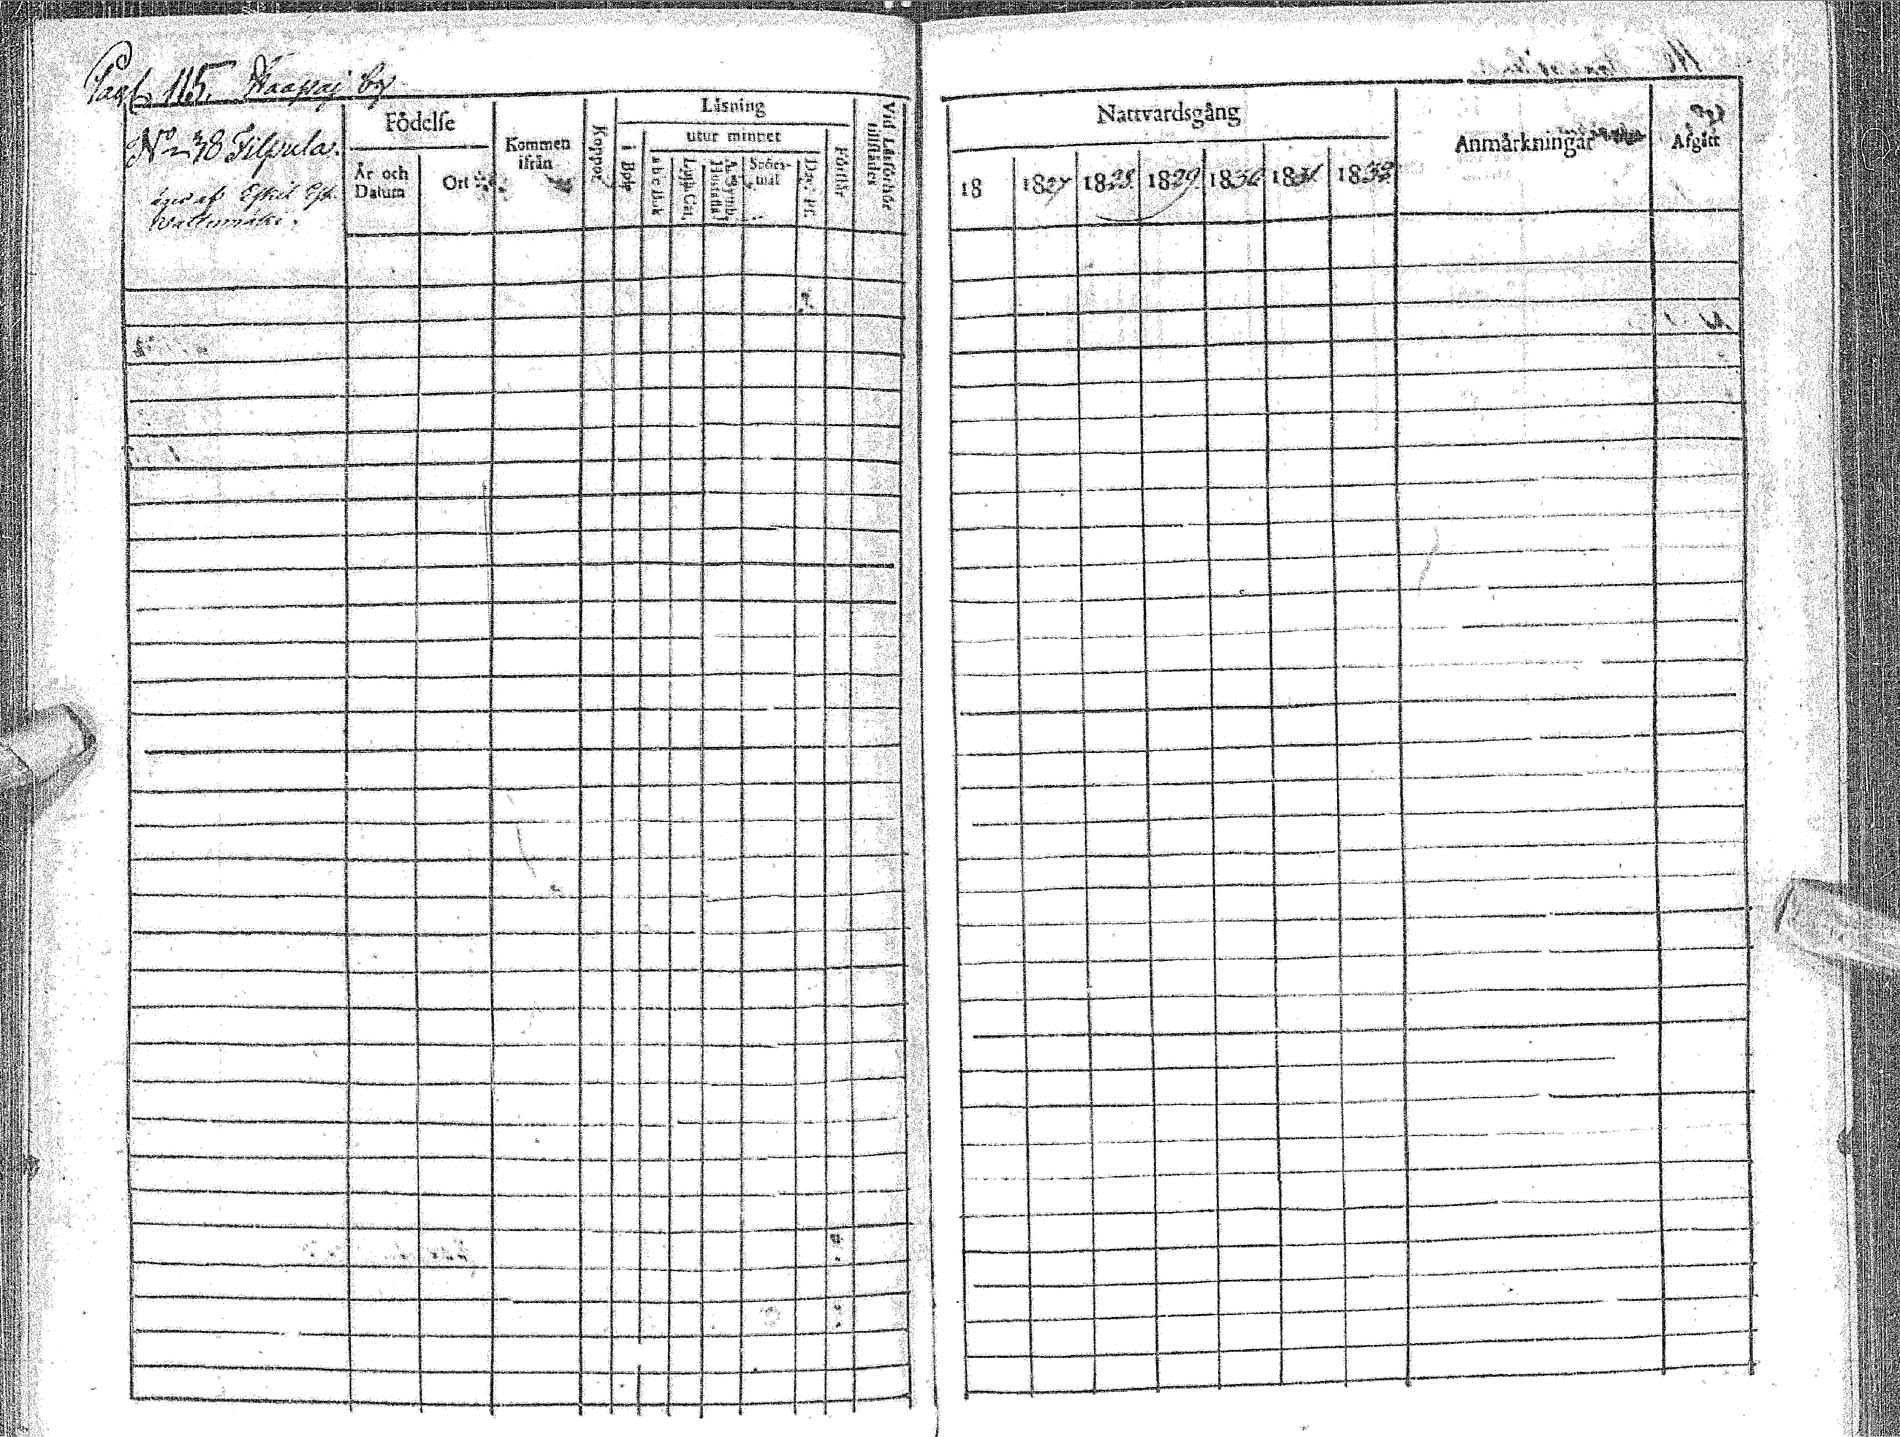 Pag. 115. Haapoj by
No 38 Tilpula.
äges af Eskel Esk.
Födelse
År och Datum
Ort
Kommen ifrån
Koppor
Läsning
i Bok
utur minnet
a b c Bok
Luth. Cat.
A. Symb. Hustafla
Spörs-mål
Dav. Ps.
Förhör
Vid Läsförhör tillstädes
Nattvardsgång
18
1827
1828
1829
1830
1831
1832
Anmärkningar
Afgått